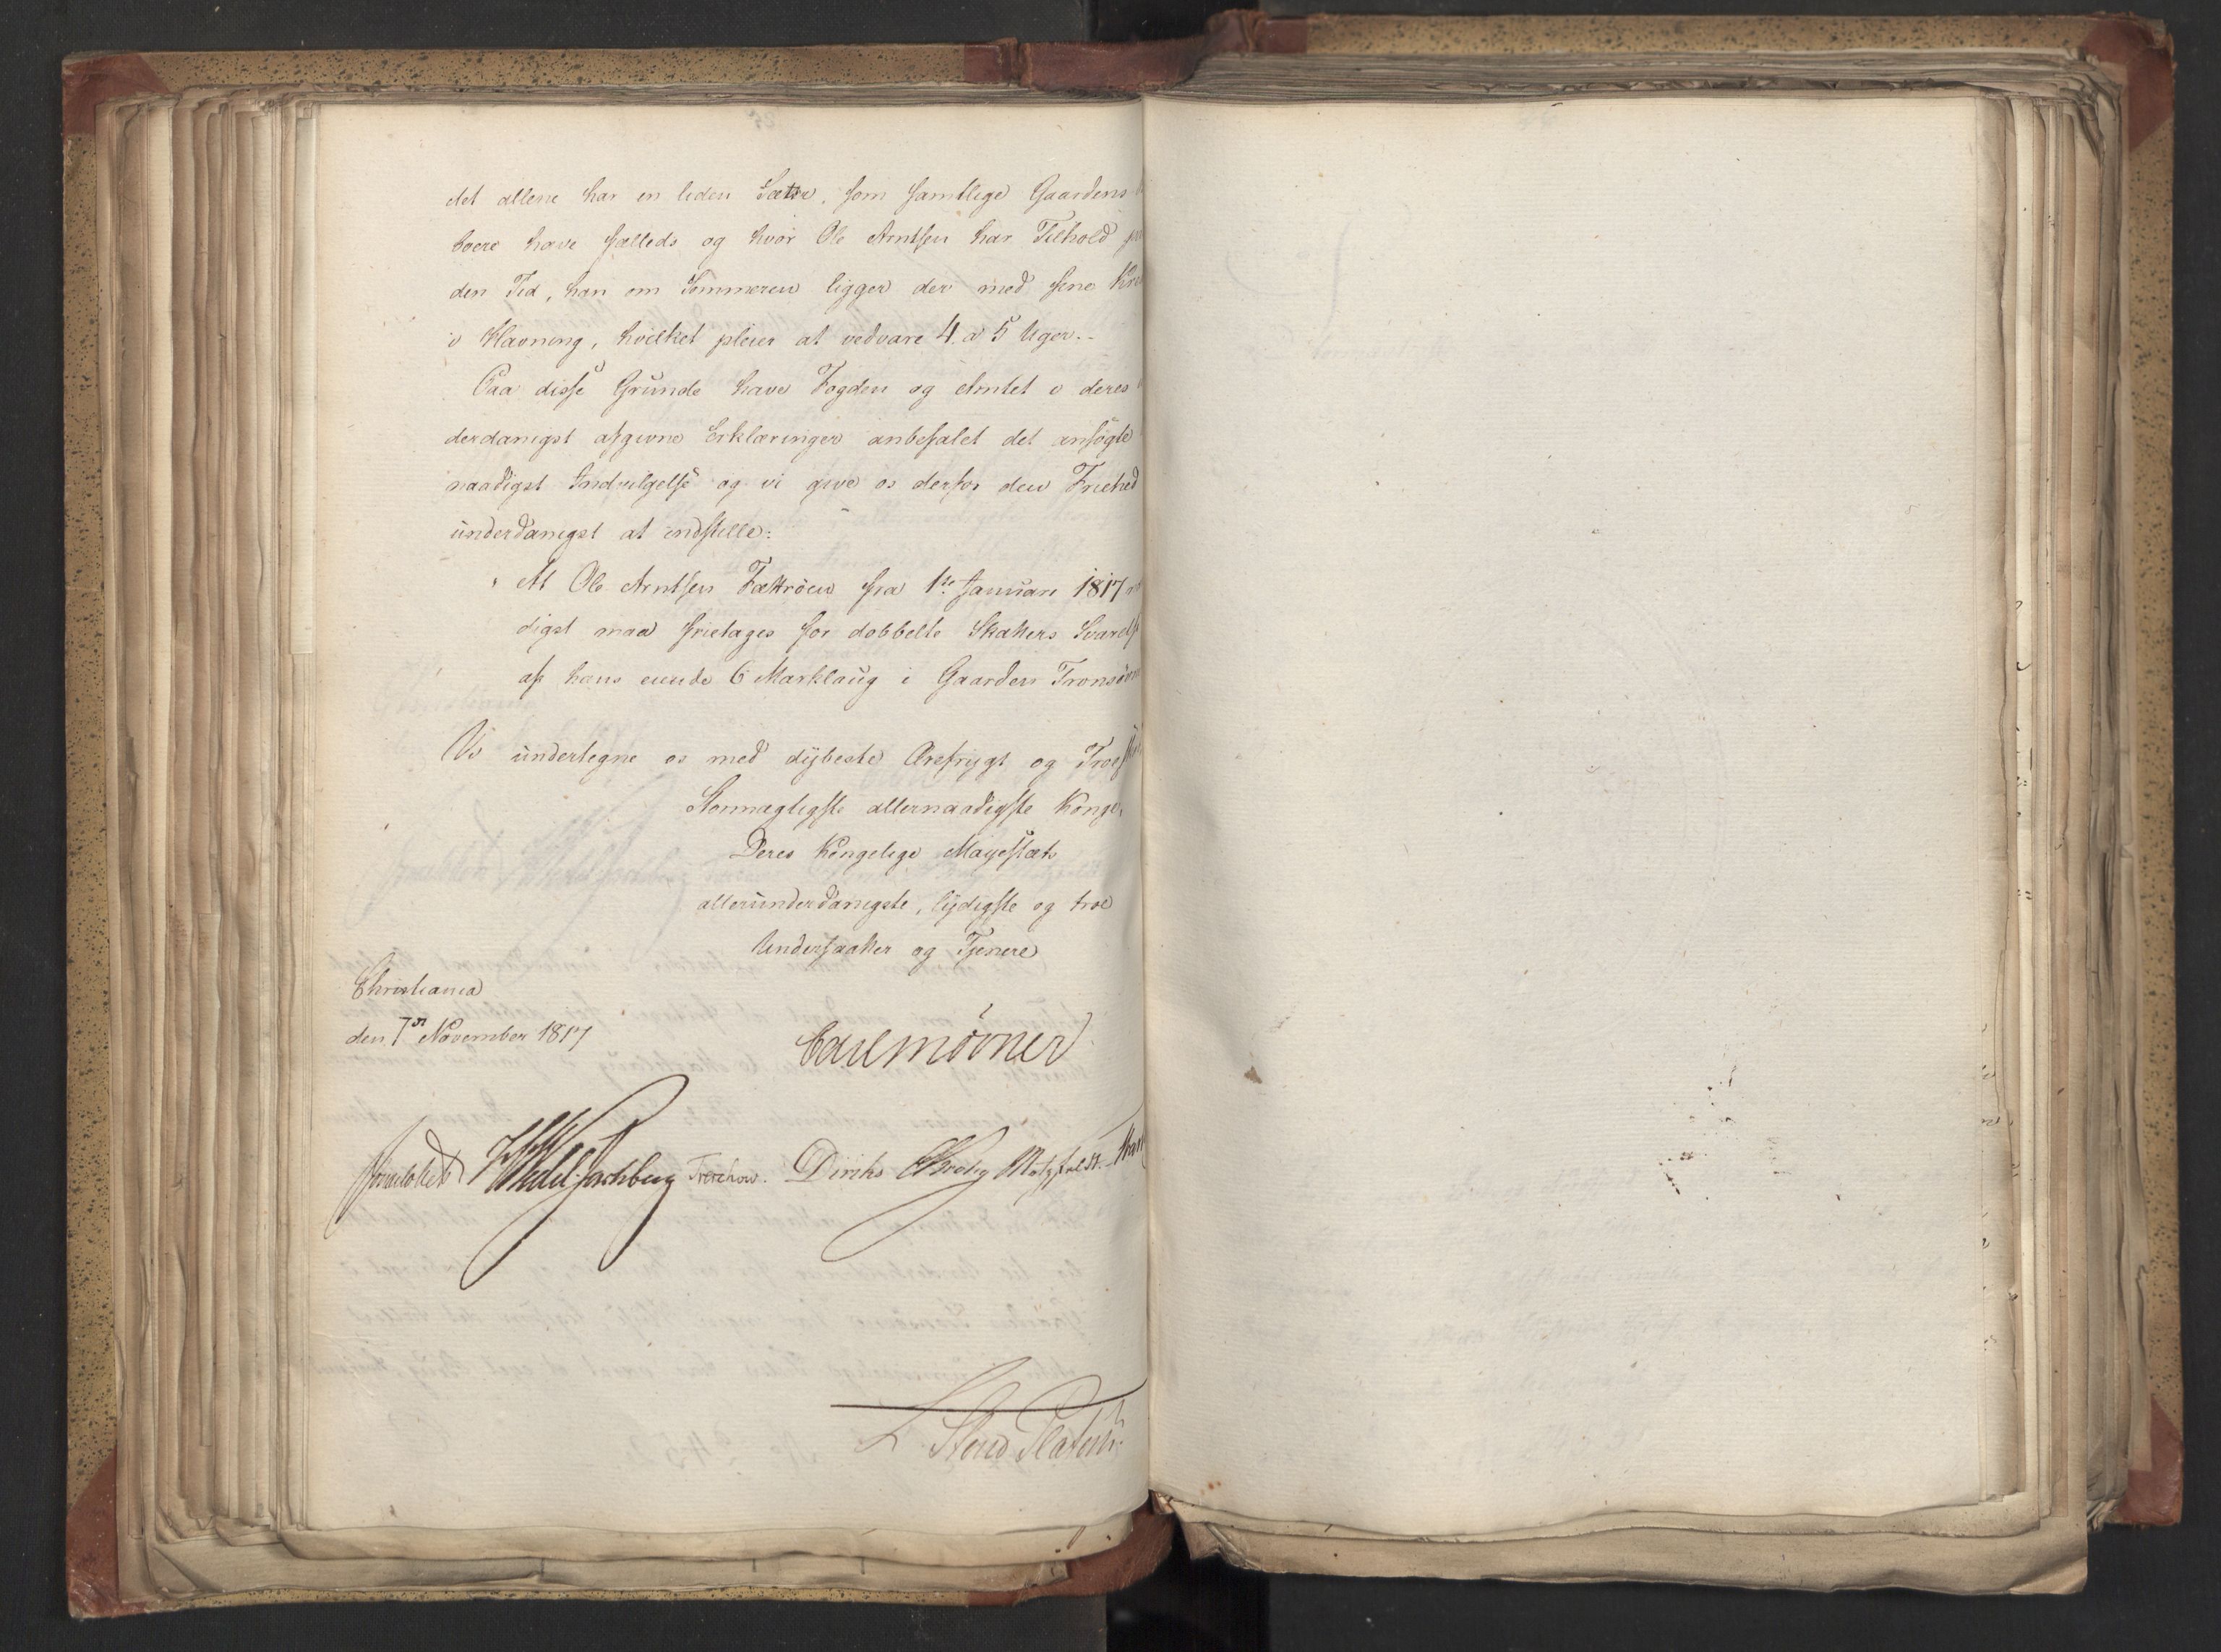 det allene har en liden Sæter, som samtlige Gaardens
boere have fælleds og hvor Ole Arntsen har Tilhold
den Tid, han om Sommeren ligger der med sine
i Havning, hvilket pleier at vedvare 4 a 5 Uger.-
Paa disse Grunde have Fogden og Amtet i deres
derdanigst afgivne Erklæringer anbefalet det ansøgte
naadigst Indvilgelse og vi give os derfor den Friehed
underdanigst at indstille:
At Ole Arntsen Fættrøen fra 1ste Januari 1817
digst maa frietages for dobbelte Skatters Svarelse
af hans eiende 6 Marklaug i Gaarden
Vi undertegne os med dybeste Ærefrygt og
Stormægtigste allernaadigste Konge,
Deres Kongelige Mayestæts
allerunderdanigste, lydigste og troe
Undersaatter og Tjenere
Christiania
den 7de November 1817
Carl Mörner
Sommerfeldt Wedel Jarlsberg Treschow. Diriks Krohg Motzfeldt.